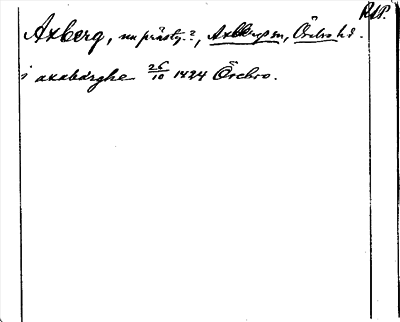 RAP.
Axberg, nu prästg.?, Axbergs sn, Örebro hd.
i axabärghe 26/10 1424 Örebro.